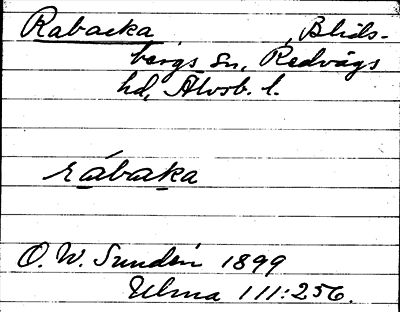 Rabacka, Blids-
bergs sn, Redvägs
hd, Älvsb. l.
rábaka
O. W. Sundén 1899
Ulma 111:256.